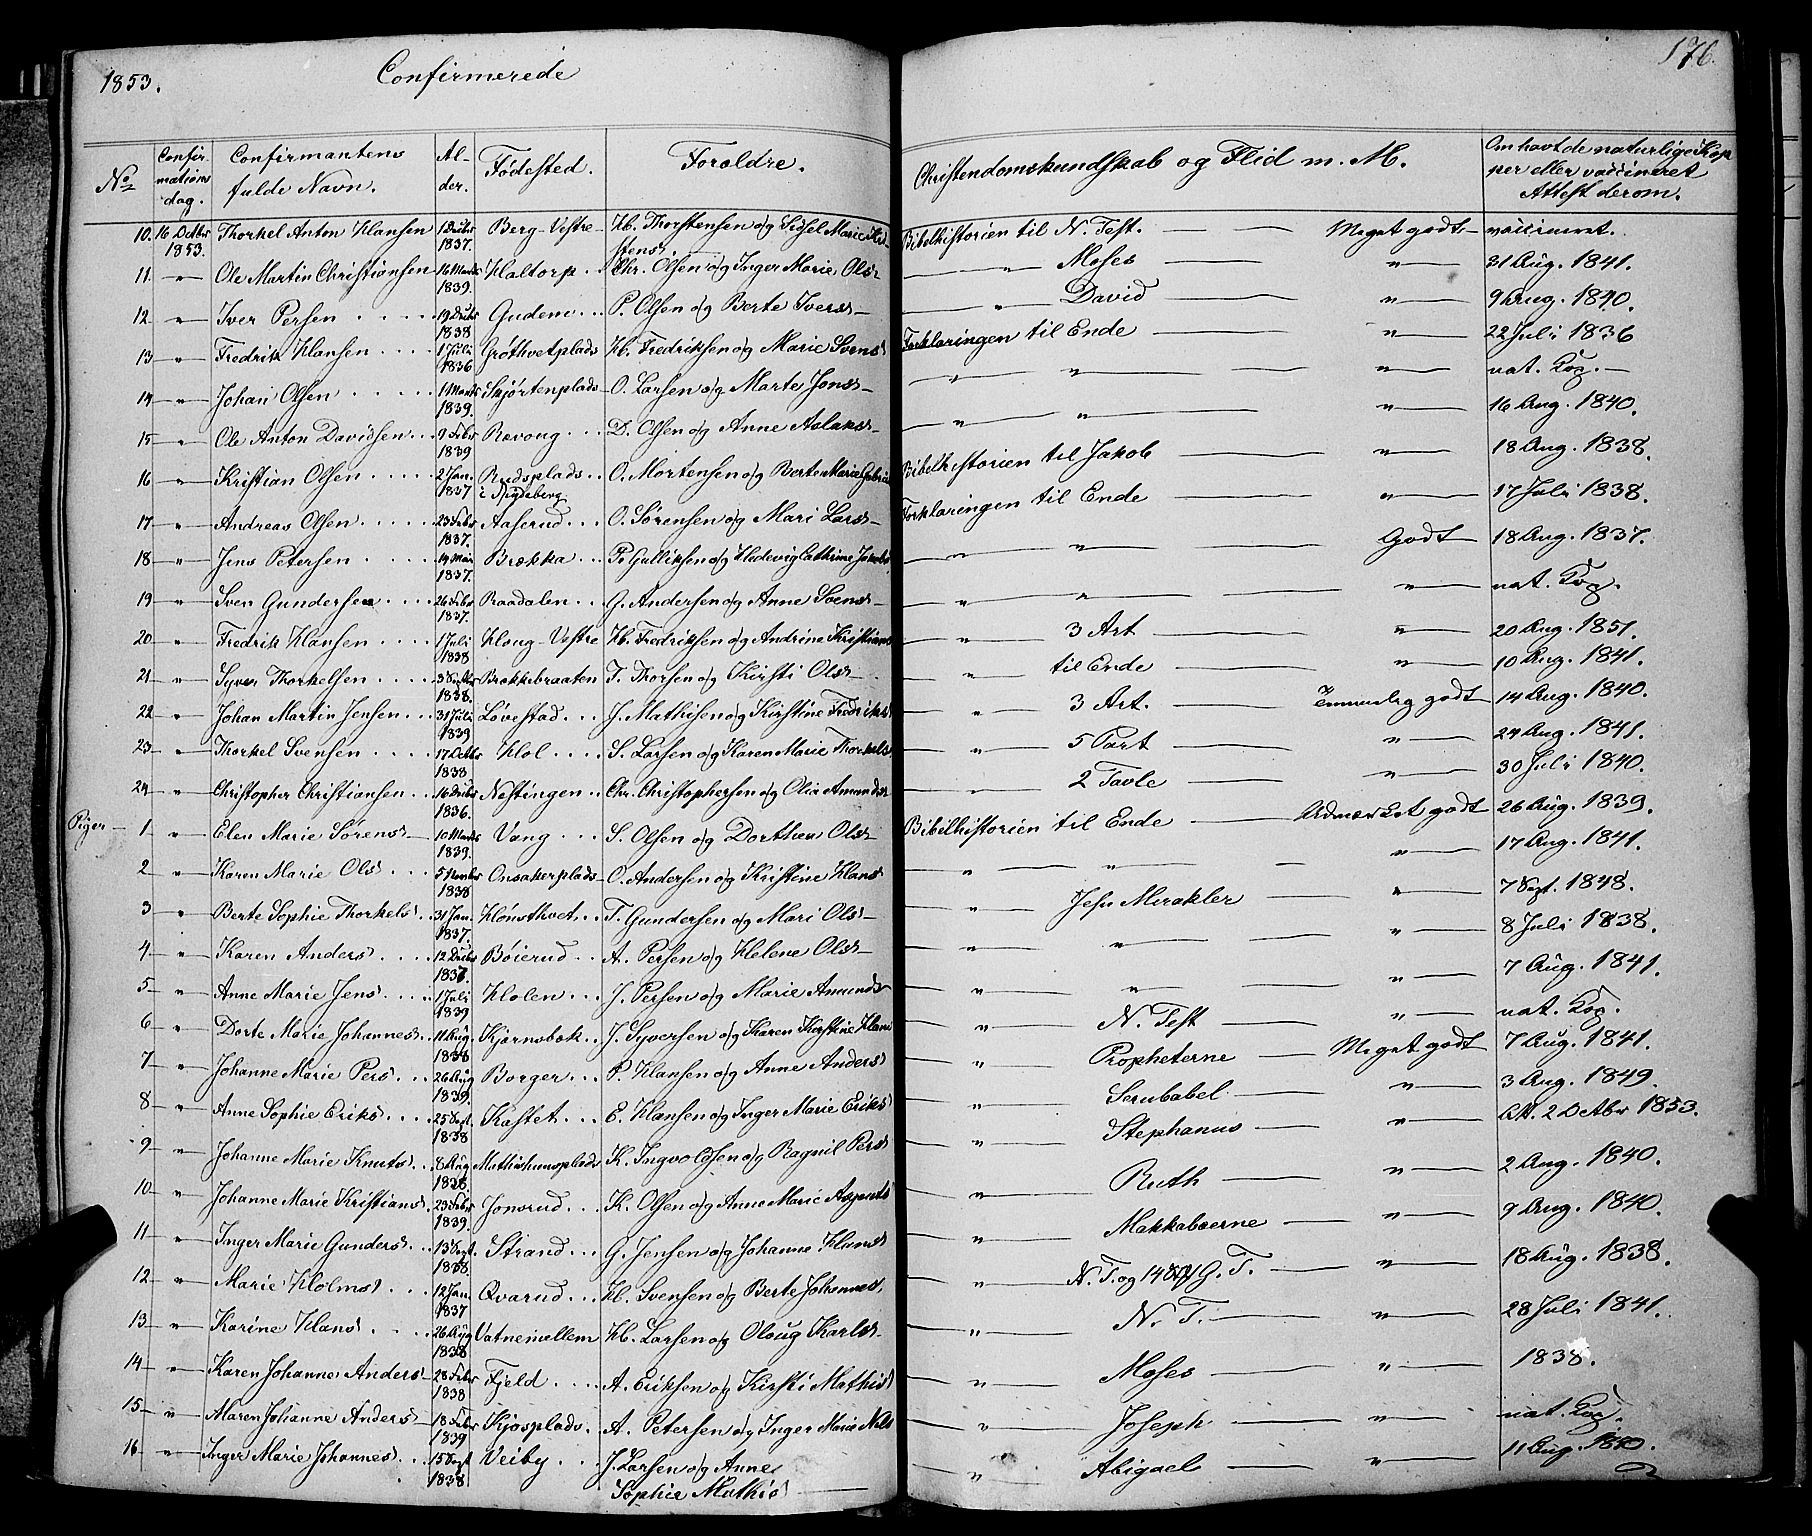 1853. Confirmerede
176.
No Confirmations dag. Confirmantens fulde Navn. Alder. Fødested. Foroldre. Christendomskundskab og Flid m. M. Om havt de naturlige Kopper eller vaccineret Attest derom.
10. 16 Octbr 1853. Thorkel Anton Hansen 1 Decbr 1837. Berg Vestre H. Thorstensen og Sidsel Marie Bibelhistorien til N. Test. Meget godt vaccineret.
11 " Ole Martin Christiansen 16 Marts 1839. Haltorp Chr. Olsen og Inger Marie Olsd " Moses " 31 Aug. 1841.
12 " Iver Persen 19 Decbr 1838 Gudem P. Olsen og Berte Iversd " David " 9 Aug. 1840.
13 " Fredrik Hansen 1 Juli 1836 Grøthvetplads H. Fredriksen og Marie Svensd Forklaringen til Ende " 22 Juli 1836
14 " Johan Olsen 1 Marts 1839. Skjørtenplads O. Larsen og Marte Jonsd " " " nat. Kop.
15 " Ole Anton Davidsen 9 Febr 1839 Ravong D. Olsen og Anne Aslaksd " " " 16 Aug. 1840.
16 " Kristian Olsen 2 Jan. 1837 Rudsplads i Rygdeberg O. Mortensen og Berte Marie Bibelhistorien til Jakob " 18 Aug. 1838.
17 " Andreas Olsen 23 Febr 1837. Aaserud O. Sørensen og Mari Larsd Forklaringen til Ende " 17 Juli 1838.
18 " Jens Petersen 14 Mai 1837. Brækka P. Gulliksen og Hedevig Cathrine Jakobsd " " Godt 18 Aug. 1837.
19 " Sven Gundersen 26 Febr 1837. Raadalen G. Andersen og Anne Svensd " " " nat. Kop.
20 " Fredrik Hansen 1 Juli 1838 Houg Vestre H. Fredriksen og Andrine Kristians " 3 Art " 20 Aug. 1851.
21 " Syver Thorkelsen 3 1838. Brekkebraaten T. Thorsen og Kirsti Olsd " til Ende " 10 Aug. 1841.
22 " Johan Martin Jensen 31 Juli 1839 Løvestad J. Mathisen og Kirstine Fredriksd " 3 Art. Temmelig godt 14 Aug. 1840.
23 " Thorkel Svensen 17 Octbr 1838 Hol S. Larsen og Karen Marie Thorkelsd " 5 Part " 24 Aug. 1841.
24 " Christopher Christiansen 16 Decbr 1836. Nestingen Chr. Christophersen og Olia Amundsd " 2 Tavle " 30 Juli 1840.
Piger 1 " Elen Marie Sørensd 10 Marts 1839. Vang S. Olsen og Dorthea Olsd Bibelhistorien til Ende Udmærket godt 26 Aug. 1839.
2 " Karen Marie Olsd 5 Novbr 1838 Onsakerplads O. Andersen og Kristine Hansd " " " 17 Aug. 1841.
3 " Berte Sophie Thorkelsd 31 Jan. 1837. Hønsthvet T. Gundersen og Mari Olsd " Jesu Mirakler " 7 Sept. 1848.
4 " Karen Andersd 12 Decbr 1837. Bøierud A. Persen og Helene Olsd " " " 8 Juli 1838.
5 " Anne Marie Jensd 1 Juli 1839 Holen J. Persen og Marie Amundsd " " " 7 Aug. 1841.
6 " Dorte Marie Johannesd 11 Aug. 1838 Kjørnsbæk J. Syversen og Karen Kirstine Hansd " N. Test " nat. Kop.
7 " Johanne Marie Persd 26 Aug 1839. Borger P. Hansen og Anne Andersd " Propheterne Meget godt 7 Aug. 1841.
8 " Anne Sophie Eriksd 25 Sept. 1838 Kastet E. Hansen og Inger Marie Eriksd " Serubabel " 3 Aug. 1849.
9 " Johanne Marie Knutsd 8 Aug 1838. Mathishunsplads K. Ingvoldsen og Ragnil Persd " Stephanus " Att. 2 Octbr 1853.
10 " Johanne Marie Kristiansd 23 Febr 1839. Jonsrud K. Olsen og Anne Marie " Ruth " 2 Aug. 1840.
11 " Inger Marie Gundersd 13 Sept. 1838. Strand G. Jensen og Johanne Hansd " Makkabæerne " 9 Aug. 1840.
12 " Marie Holmsd 12 Jan. 1837 Qvarud H. Svensen og Berte Johannesd " N. T. og 14 G. T. " 18 Aug. 1838.
13 " Karine Hansd 26 Aug 1838 Vatnemellem H. Larsen og Oloug Karlsd " N. T. " 28 Juli 1841.
14 " Karen Johanne Andersd 28 Febr 1838 Fjeld A. Eriksen og Kirsti Mathisd " Moses " 1838.
15 " Maren Johanne Andersd 18 Febr 1839 Kjosplads A. Petersen og Inger Marie Nilsd " Joseph " nat. Kop.
16 " Inger Marie Johannesd 15 Sept 1838 Veiby J. Larsen og Anne Sophie Mathisd " Abigael " 11 Aug. 1840.